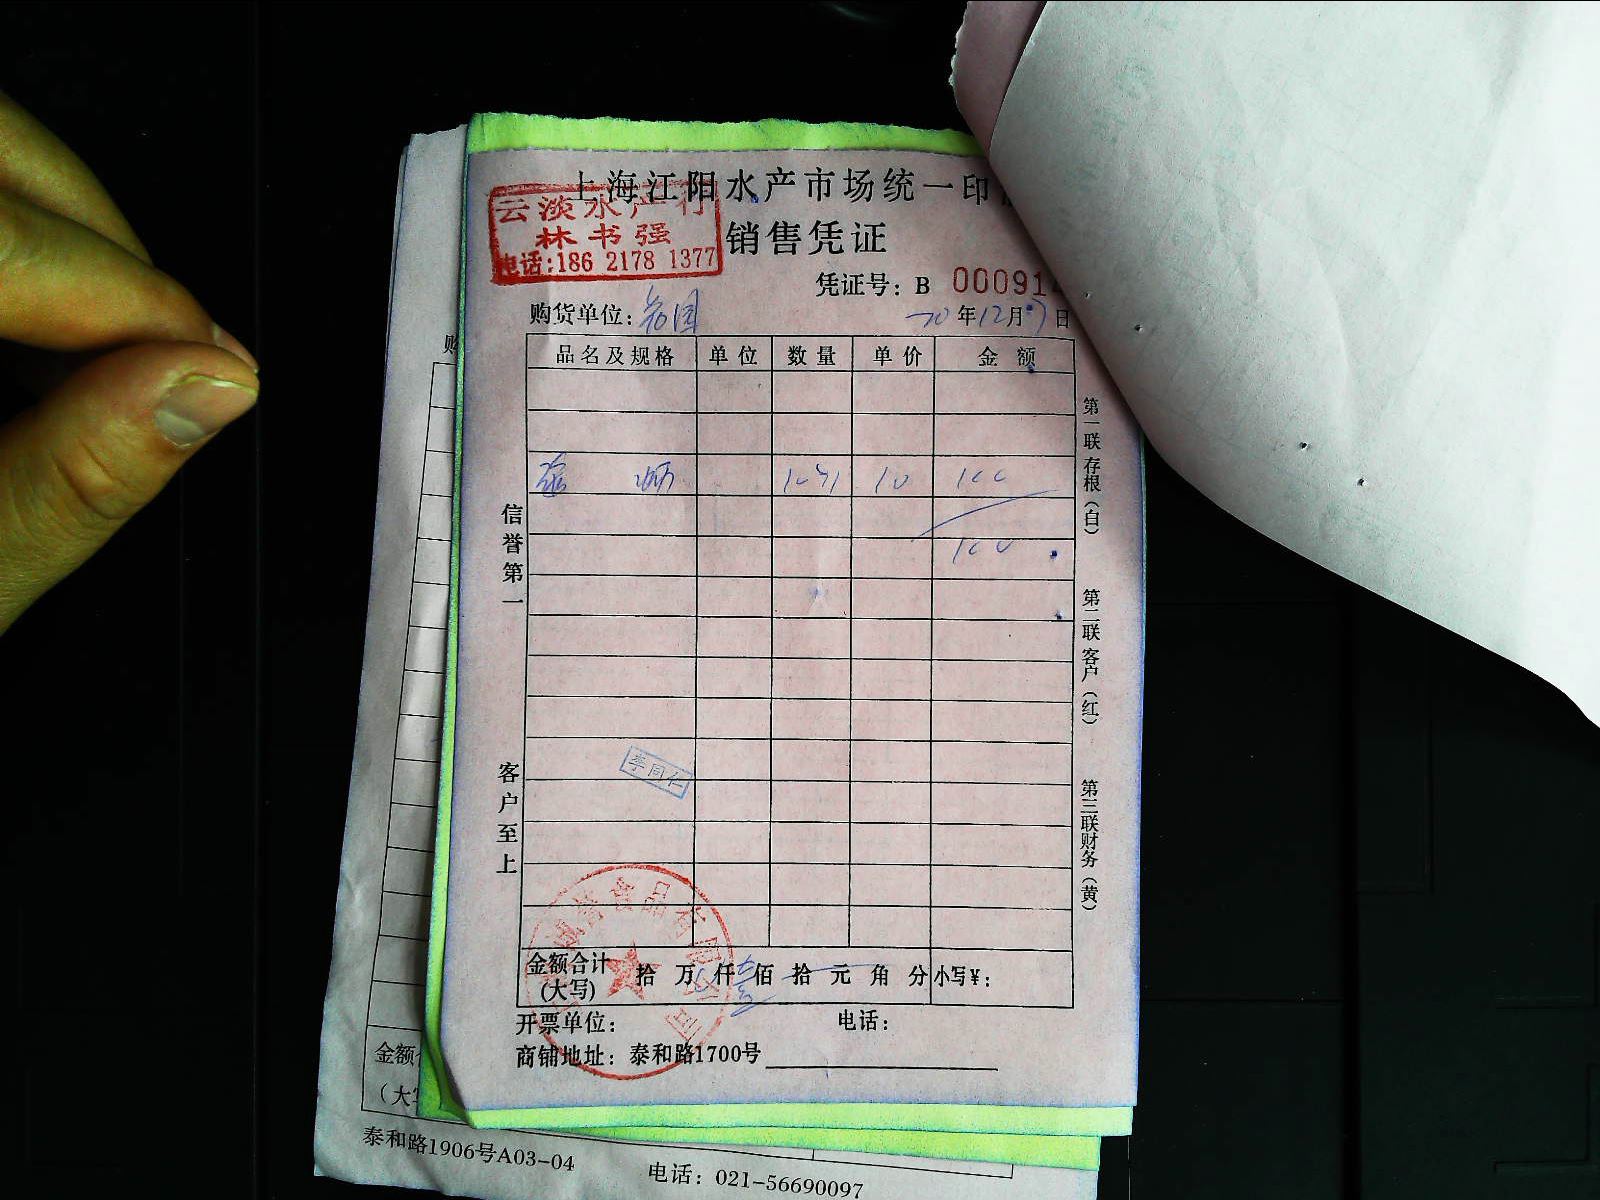 上海江阳水产市场统一印
云淡水产行
林书强
电话:186 2178 1377
销售凭证
凭证号: B 000914
购货单位:
20年12月7日
品名及规格 单位 数量 单价 金额
10 100
100
信誉第一
客户至上
第一联存根(白)
第二联客户(红)
第三联财务(黄)
李同仁
诚誉食品有限公司
金额合计(大写) 拾万仟壹佰拾元角分 小写¥:
开票单位: 电话:
商铺地址: 泰和路1700号
购
金额
(大
泰和路1906号A03-04
电话: 021-56690097